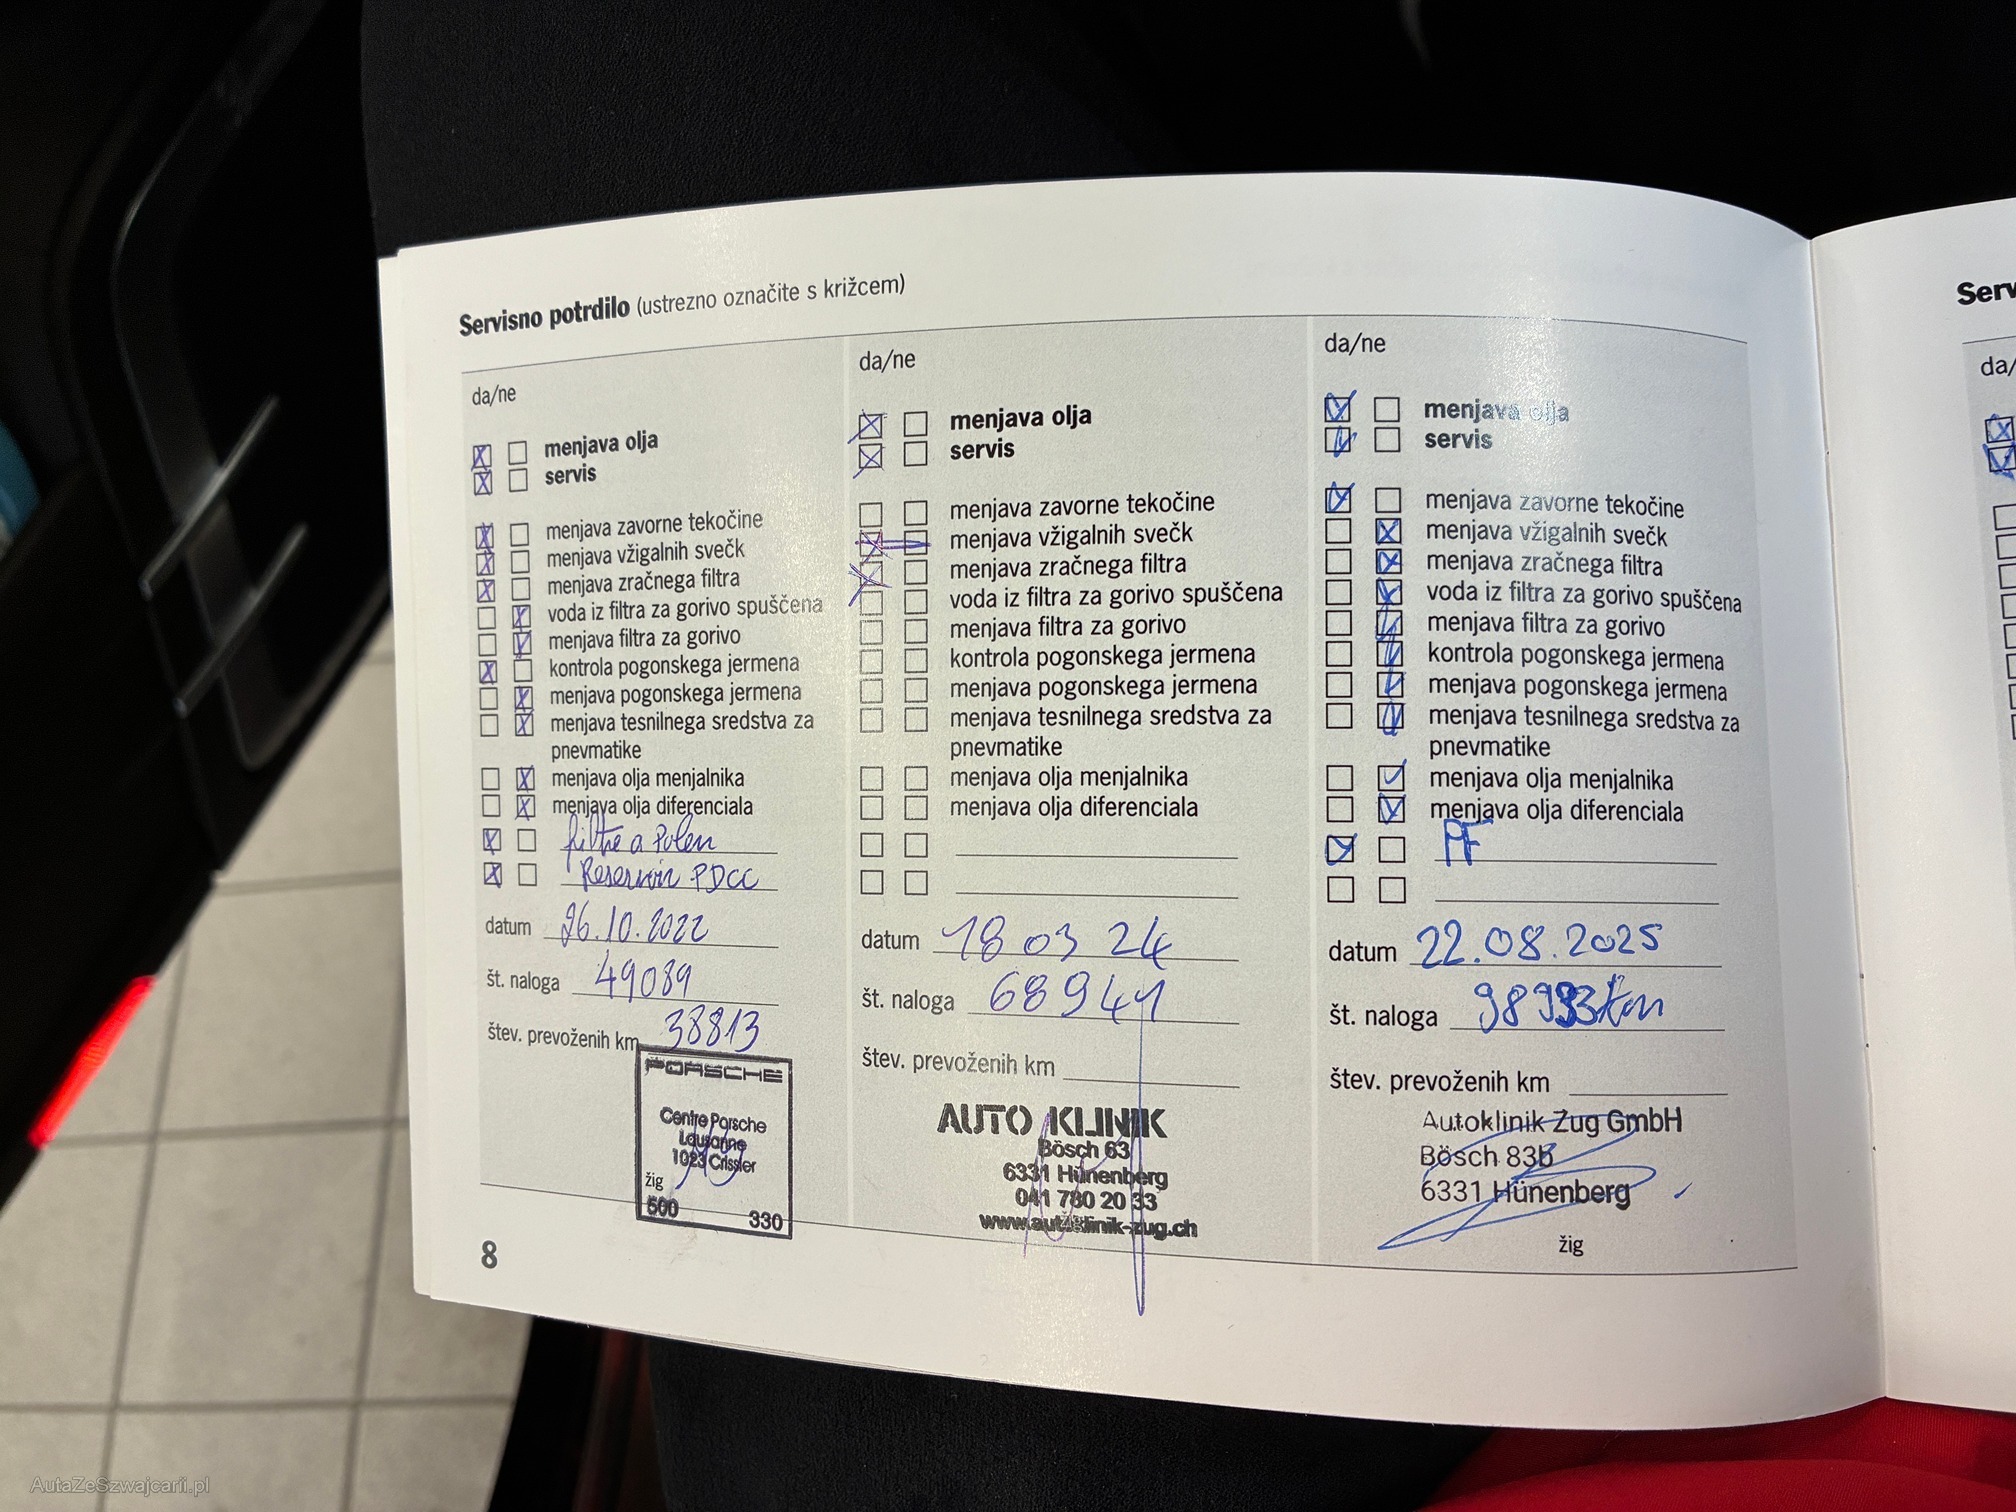 Servisno potrdilo (ustrezno označite s križcem)
da/ne
menjava olja
servis
menjava zavorne tekočine
menjava vžigalnih svečk
menjava zračnega filtra
voda iz filtra za gorivo spuščena
menjava filtra za gorivo
kontrola pogonskega jermena
menjava pogonskega jermena
menjava tesnilnega sredstva za
pnevmatike
menjava olja menjalnika
menjava olja diferenciala
filtre a Polen
Reservoir PDCC
datum 26.10.2022
št. naloga 49089
štev. prevoženih km 38813
PORSCHE
Centre Porsche
Lausanne
1023 Crissier
žig
500 330
8
da/ne
menjava olja
servis
menjava zavorne tekočine
menjava vžigalnih svečk
menjava zračnega filtra
voda iz filtra za gorivo spuščena
menjava filtra za gorivo
kontrola pogonskega jermena
menjava pogonskega jermena
menjava tesnilnega sredstva za
pnevmatike
menjava olja menjalnika
menjava olja diferenciala
datum 18 03 24
št. naloga 68941
štev. prevoženih km
AUTO KLINIK
Bösch 63
6331 Hünenberg
041 780 20 33
www.autoklinik-zug.ch
da/ne
menjava olja
servis
menjava zavorne tekočine
menjava vžigalnih svečk
menjava zračnega filtra
voda iz filtra za gorivo spuščena
menjava filtra za gorivo
kontrola pogonskega jermena
menjava pogonskega jermena
menjava tesnilnega sredstva za
pnevmatike
menjava olja menjalnika
menjava olja diferenciala
PF
datum 22.08.2025
št. naloga
štev. prevoženih km
Autoklinik Zug GmbH
Bösch 83b
6331 Hünenberg
žig
Serv
da/
AutaZeSzwajcarii.pl